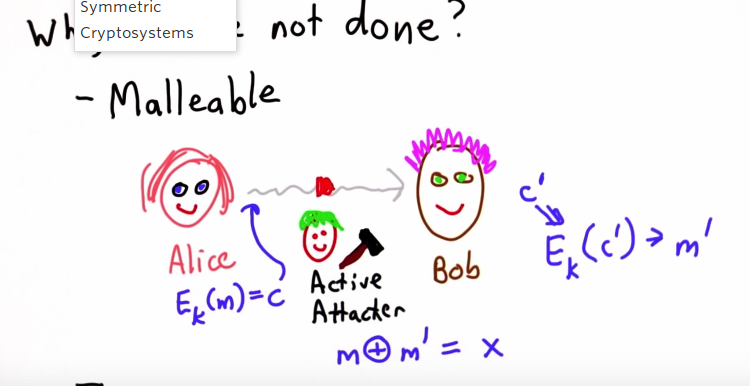 Symmetric
Cryptosystems
not done?
- Malleable
Alice
Bob
Active
Attacker
E_k(m)=c
c'
E_k(c') → m'
m ⊕ m' = x